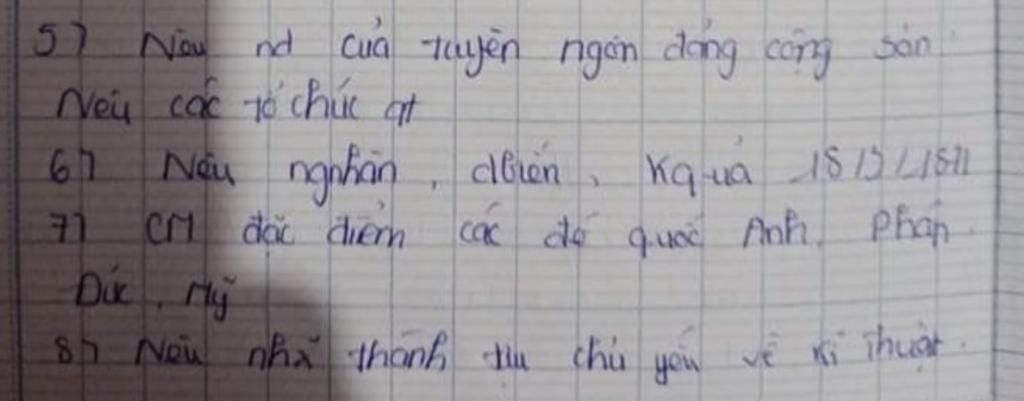 5) Nêu nd của tuyên ngôn đảng cộng sản
Nêu các tổ chức qt
6) Nêu ngnhân, dbiến, kquả 18/3/1871
7) CM đặc điểm các đế quốc Anh, Pháp
Đức, Mỹ
8) Nêu những thành tựu chủ yếu về kĩ thuật.